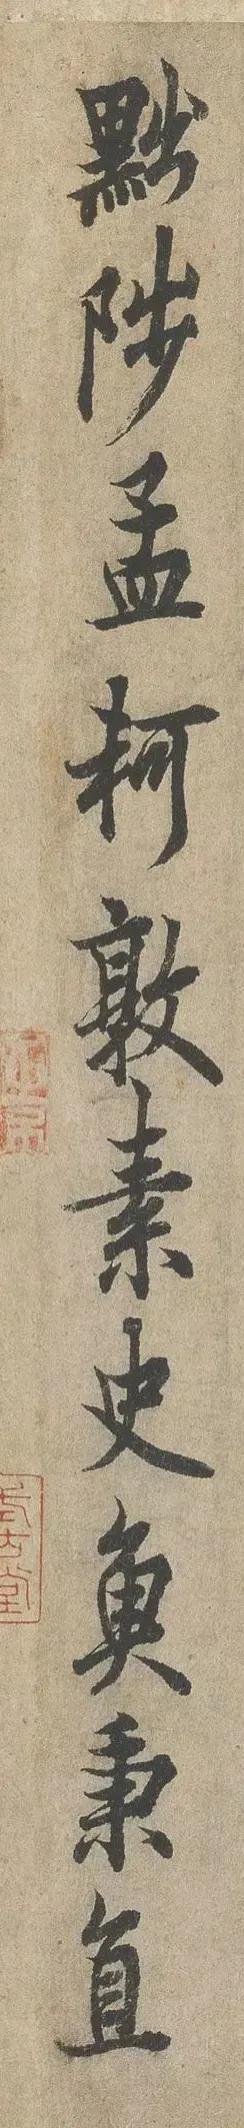 黜陟孟軻敦素史魚秉直